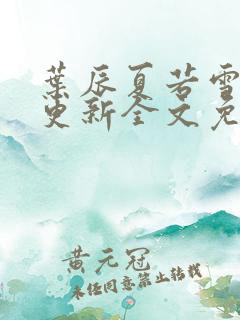 葉辰夏若雪
更新全文免
黄元冠
未经同意禁止转载